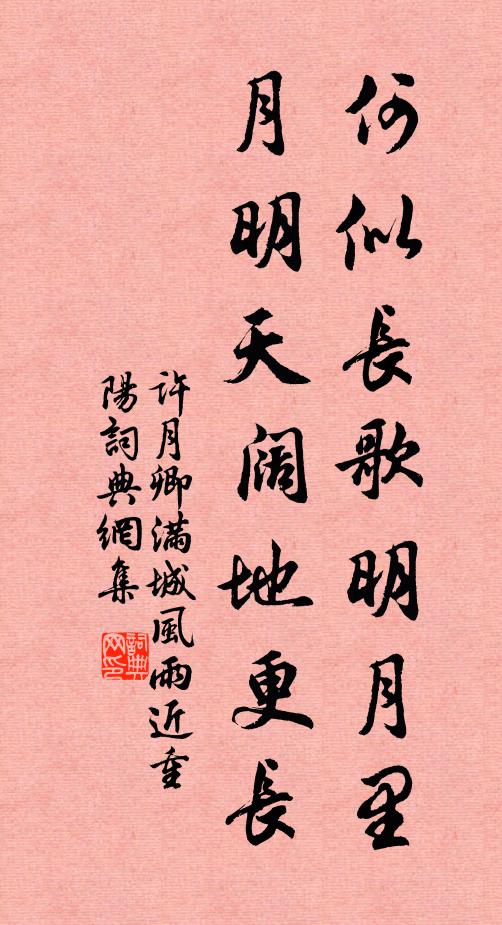 何似長歌明月里
月明天阔地更長
許月卿满城風雨近重
陽詞典網集
詞典
网印